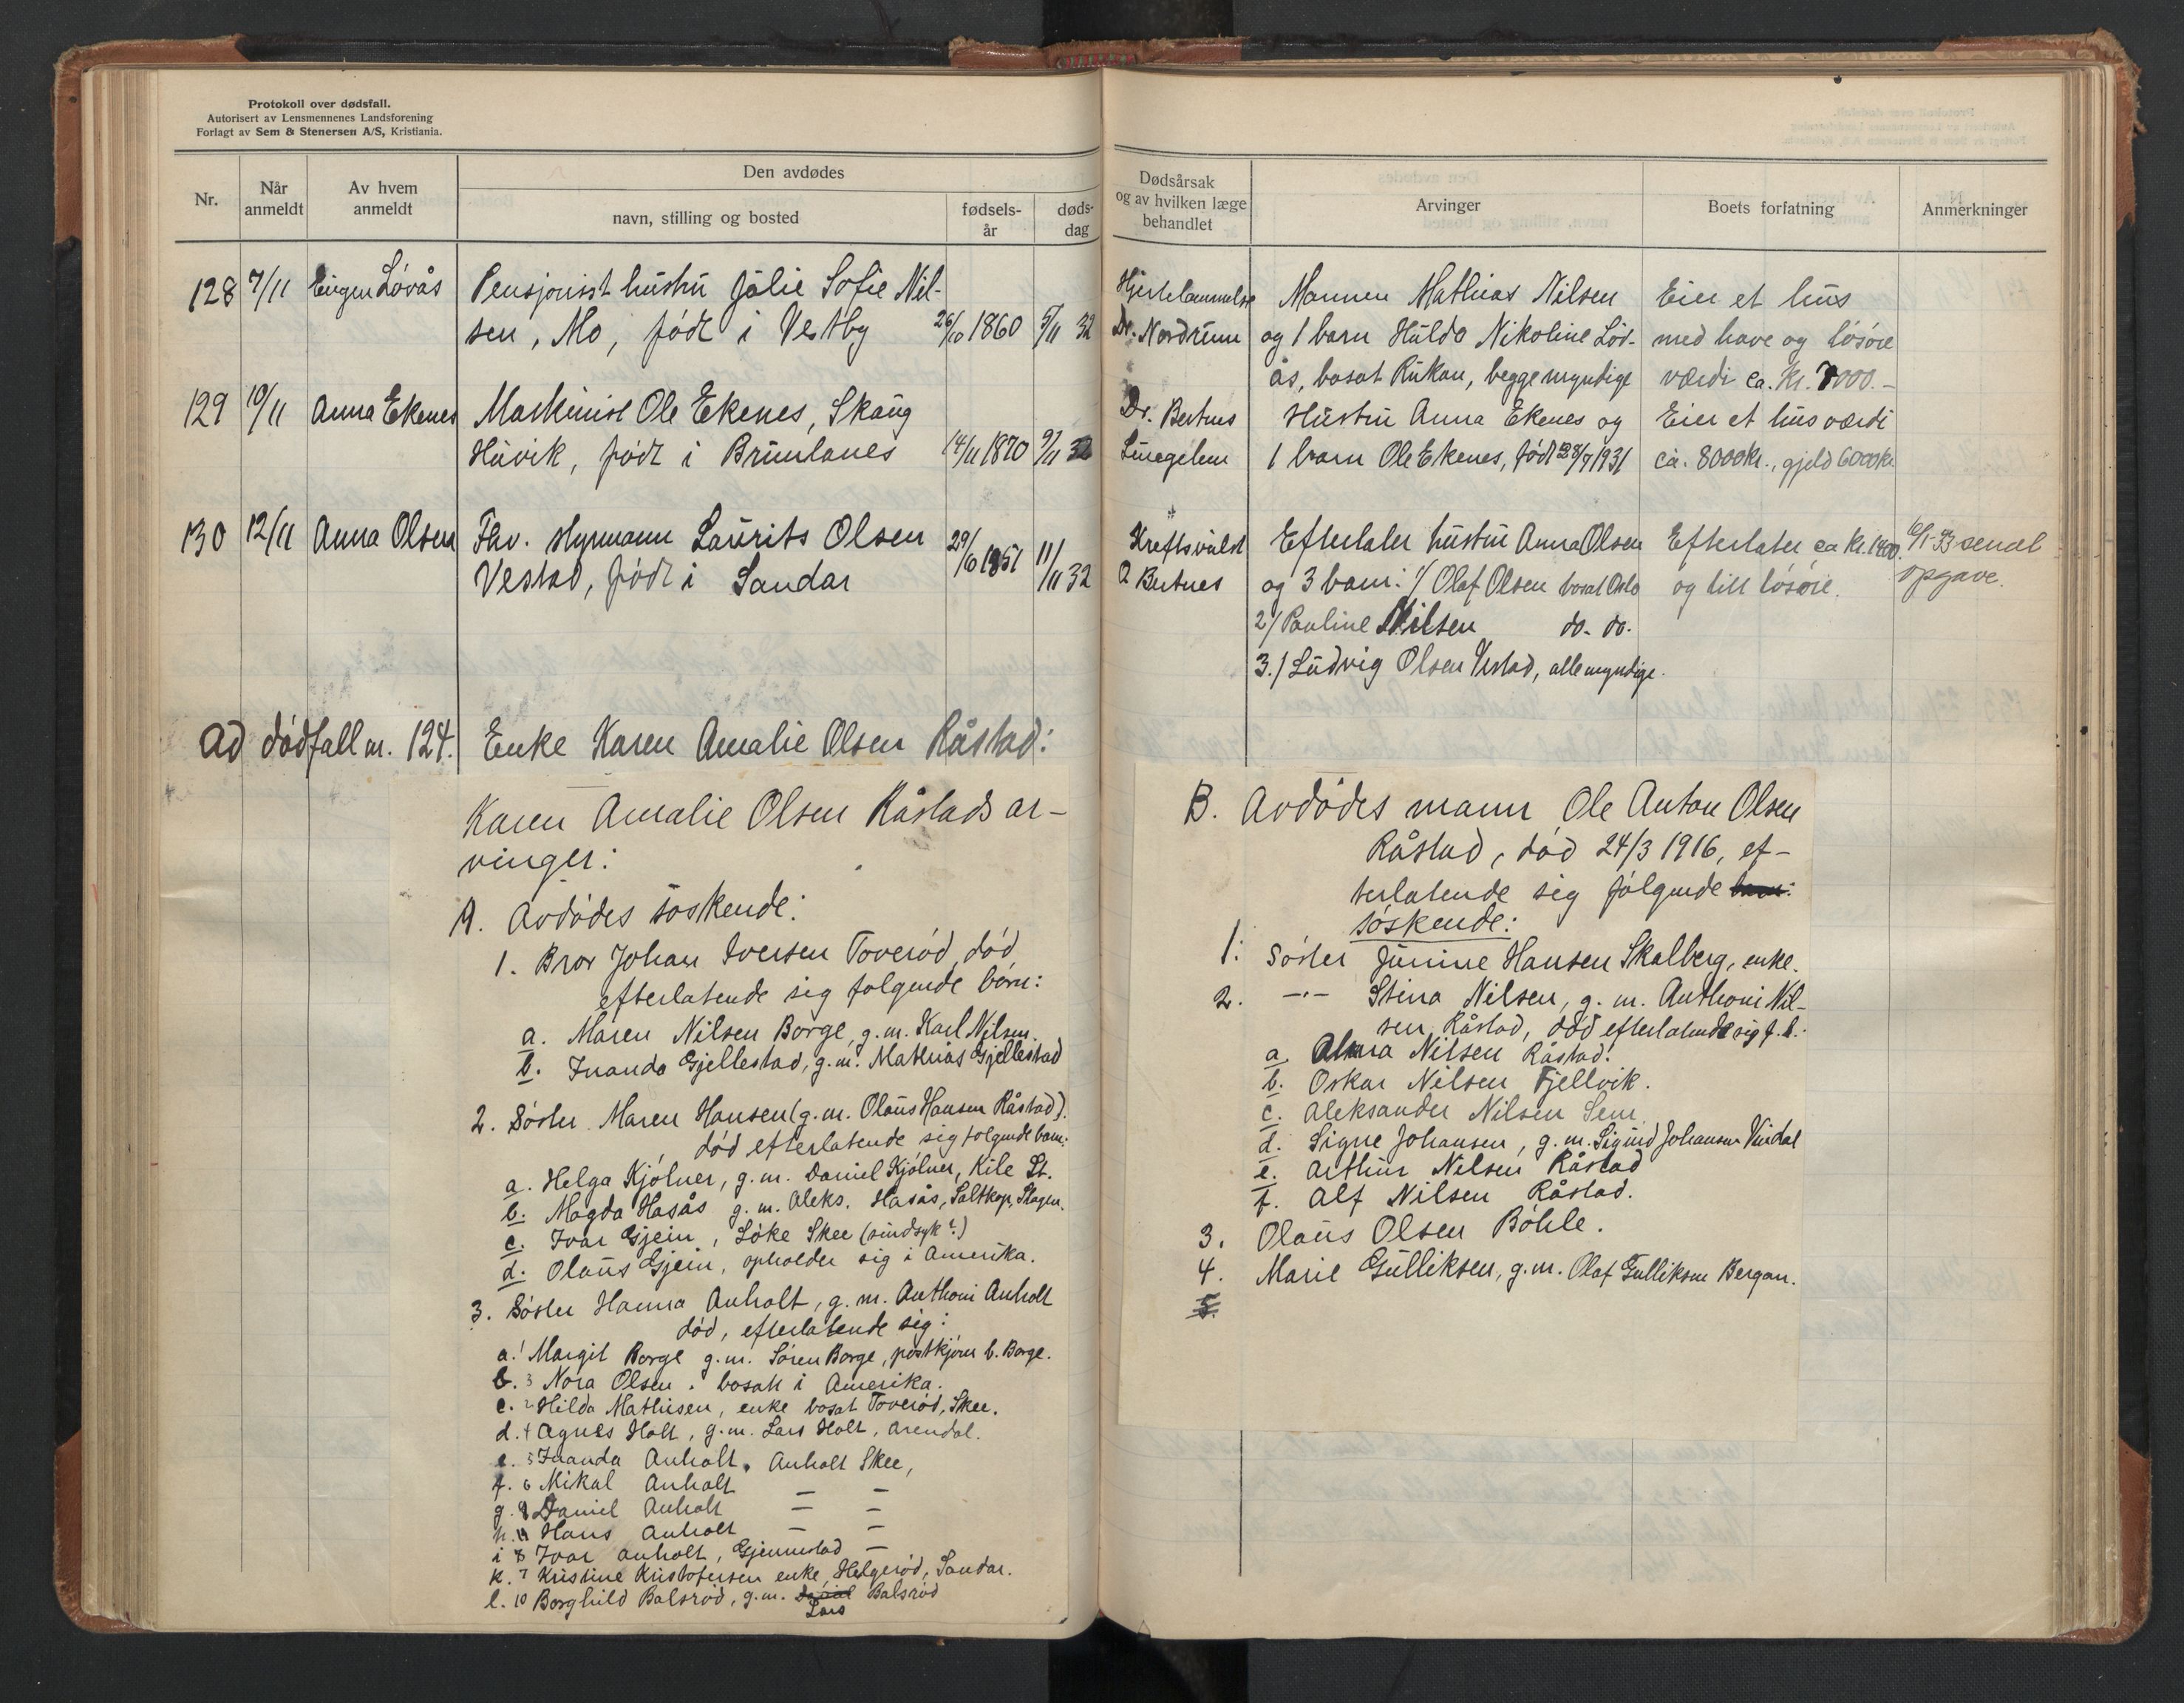 Protokoll over dødsfall.
Autorisert av Lensmennenes Landsforening
Forlagt av Sem & Stenersen A/S, Kristiania.
Nr.
Når anmeldt
Av hvem anmeldt
Den avdødes
navn, stilling og bosted
fødsels-år
døds-dag
Dødsårsak og av hvilken læge behandlet
Arvinger
Boets forfatning
Anmerkninger
128 7/11 Eugen Løvås Pensjonist hustru Julie Sofie Nil-
sen, Mo, født i Vestby 26/10 1860 5/11 32
Hjertelammelse
Dr. Nordrum
Mannen Mathias Nilsen
og 1 barn Hulda Nikoline Løv-
ås, bosat Rukan, begge myndige
Eier et hus
med have og løsøre
værdi ca. Kr. 7000.-
129 10/11 Anna Ekenes Maskinist Ole Ekenes, Skaug
Husvik, født i Brunlanes 14/11 1870 9/11 32
Dr. Bertnes
Hustru Anna Ekenes og
1 barn Ole Ekenes, født 28/7 1931
Eier et hus værdi
ca. 8000 kr., gjeld 6000 kr.
130 12/11 Anna Olsen Fhv. styrmann Laurits Olsen
Vestad, født i Sandar 29/6 1851 11/11 32
Kreftsvulst
Bertnes
Efterlater hustru Anna Olsen
og 3 barn: 1/ Olaf Olsen bosat Oslo
2/ Pauline Nilsen do. do.
3./ Ludvig Olsen Vestad, alle myndige.
Efterlater ca Kr. 1400.
og litt løsøre.
10/1-33 sendt
opgave.
Ad dødfall nr. 124. Enke Karen Amalie Olsen Råstad:
Karen Amalie Olsen Råstads ar-
vinger:
A. Avdødes søskende:
1. Bror Johan Iversen Toverød, død
efterlatende sig følgende børn:
a. Maren Nilsen Borge, g.m. Karl Nilsen.
b. Inanda Gjellestad, g.m. Mathias Gjellestad
2. Søster Maren Hansen (g.m. Olaus Hansen Råstad).
død efterlatende sig følgende barn:
a. Helga Kjølner, g.m. Daniel Kjølner, Kile St.
b. Magda Hasås g.m. Aleks. Hasås, Saltkop, Slagen.
c. Ivar Gjein, Løke Skee (sindsyk?)
d. Olaus Gjein, opholder sig i Amerika.
3. Søster Hanna Anholt, g.m. Anthoni Anholt
død, efterlatende sig:
a. 1 Margit Borge g.m. Søren Borge, postkjører b. Borge.
b. 3 Nora Olsen. bosatt i Amerika.
c. 2 Hilda Mathisen, enke bosat Toverød, Skee.
d. 4 Agnes Holt, g.m. Lars Holt, Arendal.
e. 5 Inanda Anholt, Anholt Skee,
f. 6 Mikal Anholt — —
g. 9 Daniel Anholt — —
h. 11 Hans Anholt — —
i 8 Ivar Anholt, Gjennestad —
k. 7 Kristine Kristofersen enke, Helgerød, Sandar.
l. 10 Borghild Balsrød, g.m. Lars Balsrød
B. Avdødes mann Ole Anton Olsen
Råstad, død 24/3 1916, ef-
terlatende sig følgende barn:
søskende:
1. Søster Junine Hansen Skalberg, enke.
2. -"- Stina Nilsen, g.m. Anthoni Nil-
sen, Råstad, død efterlatende sig f.b.:
a. Alma Nilsen Råstad.
b. Oskar Nilsen Fjellvik.
c. Aleksander Nilsen Sem
d. Signe Johansen, g.m. Sigurd Johansen Vindal
e. Arthur Nilsen Råstad
f. Alf Nilsen Råstad.
3. Olaus Olsen Bøhle.
4. Marie Gulliksen, g.m. Olaf Gulliksen Bergan.
5.